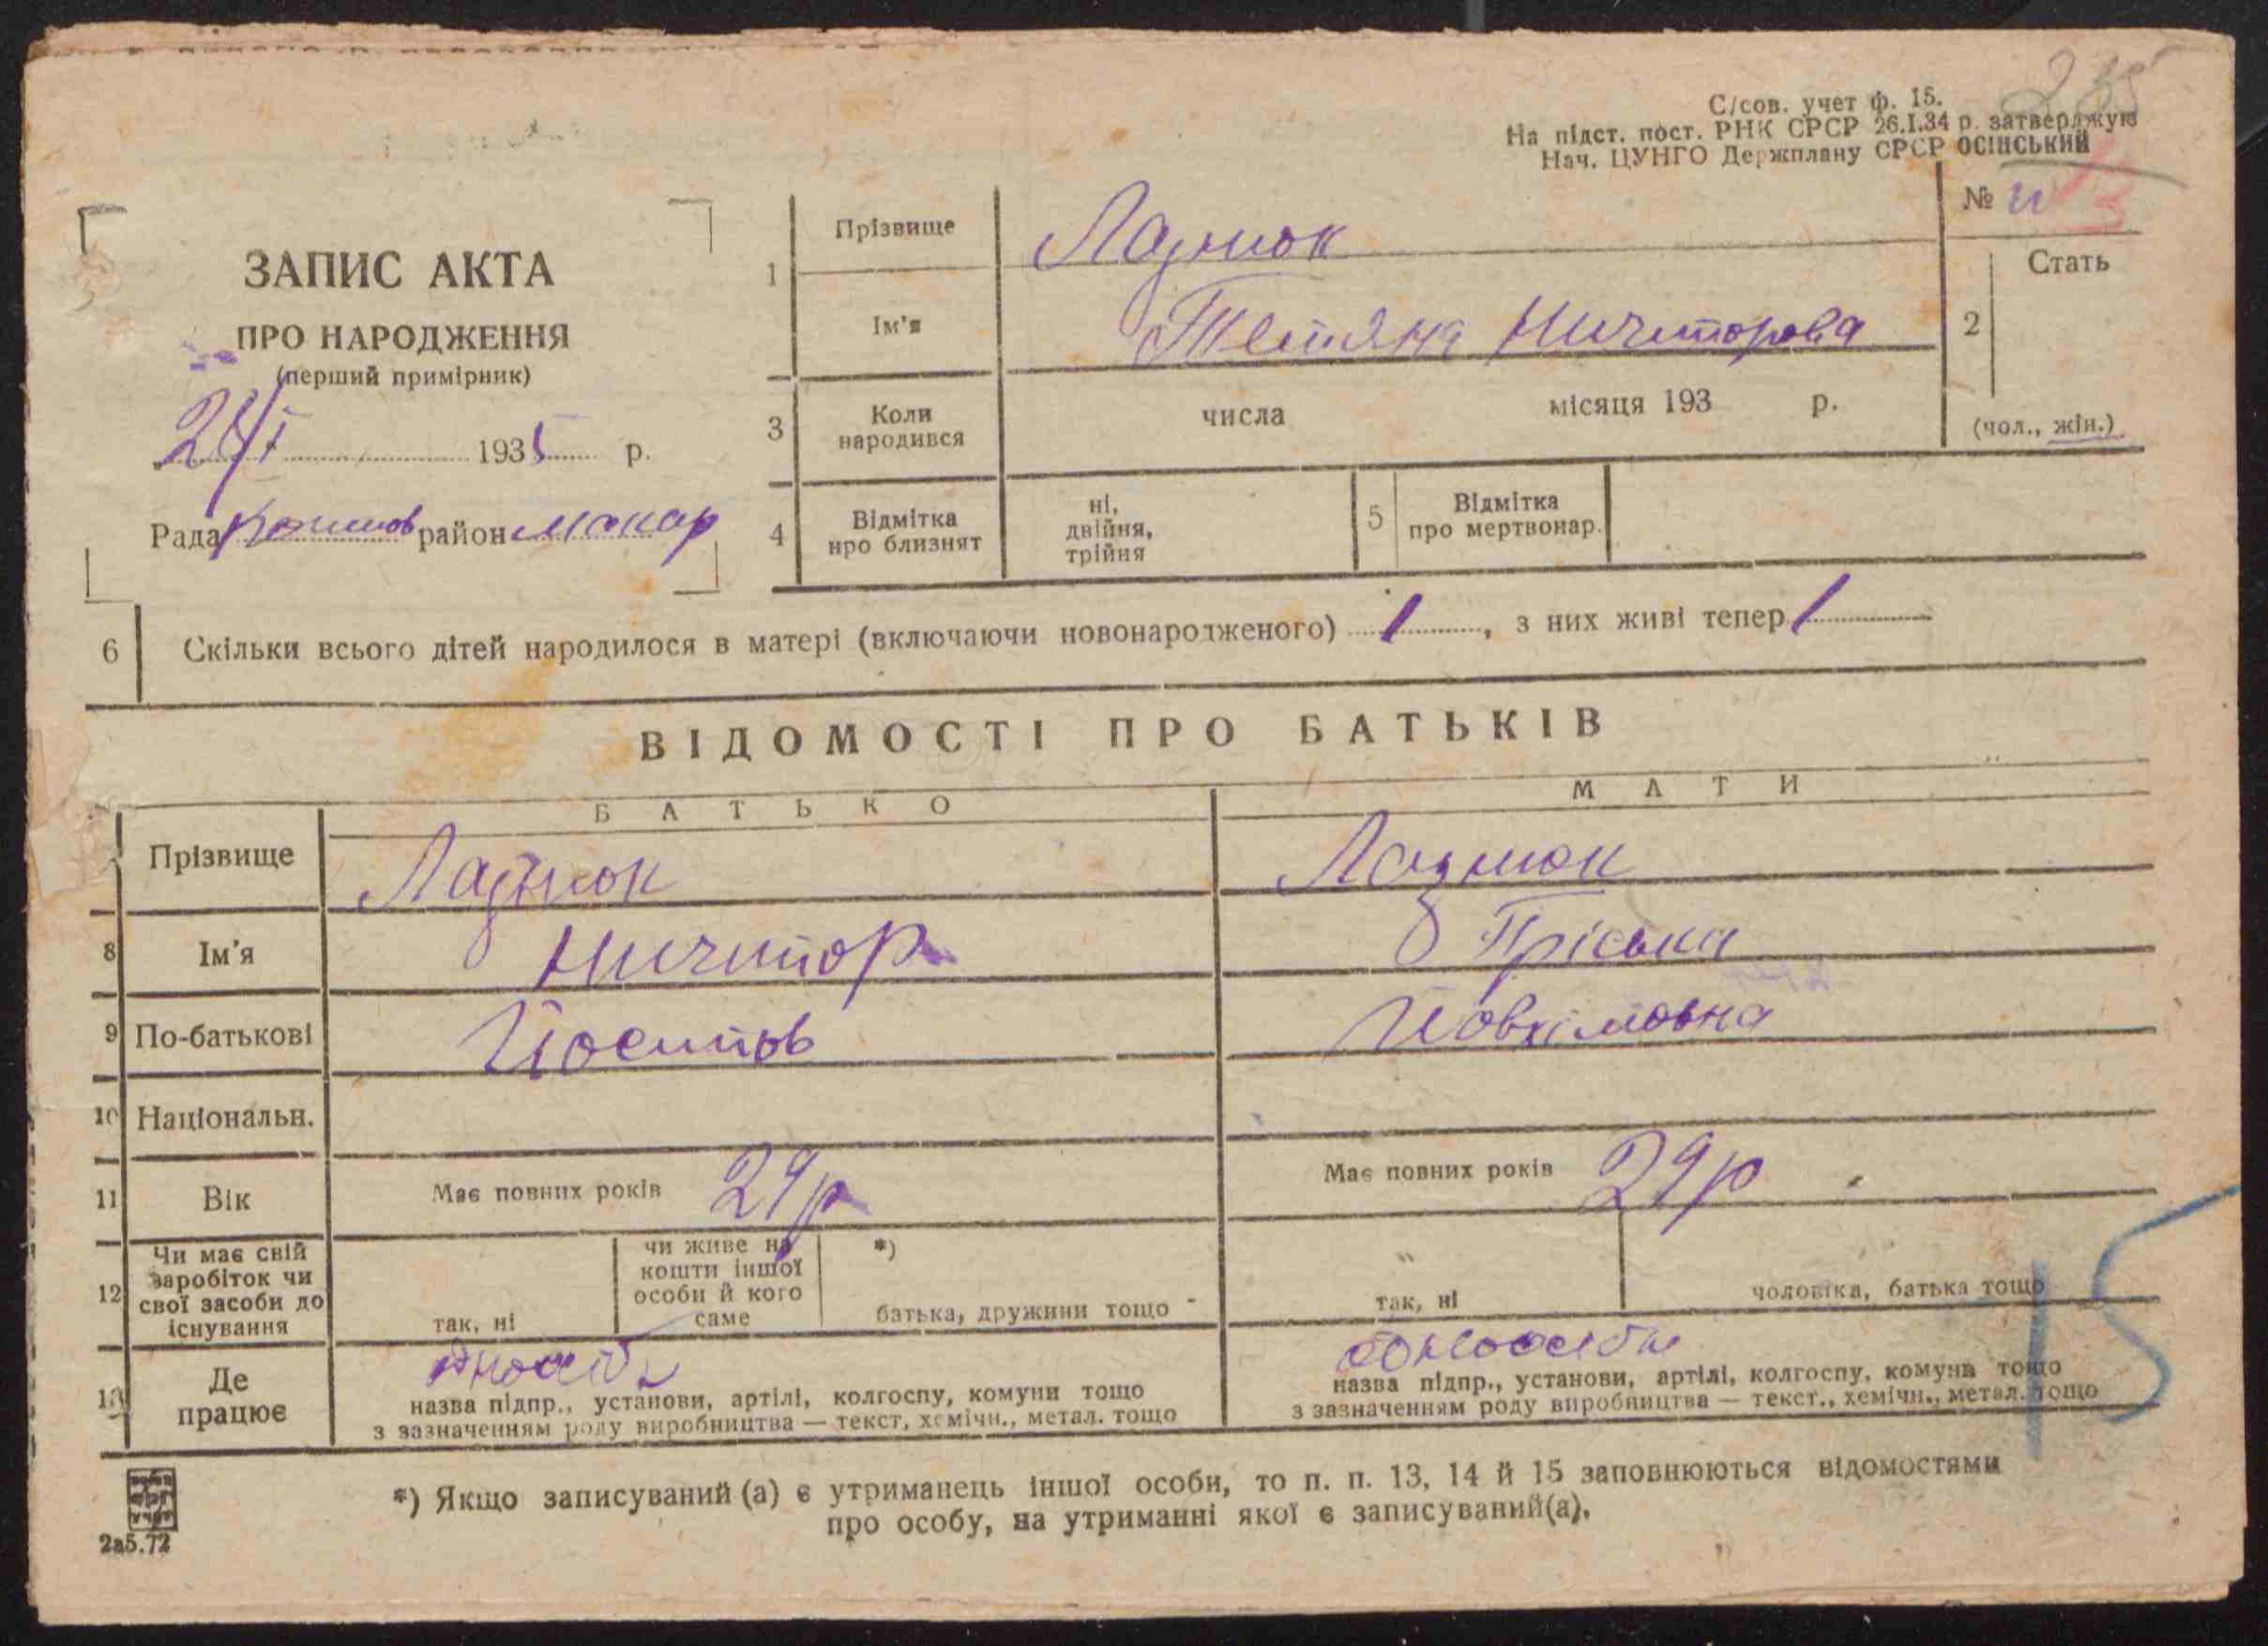 235
С/сов. учет ф. 15.
На підст. пост. РНК СРСР 26.I.34 р. затверджую
Нач. ЦУНГО Держплану СРСР ОСІНСЬКИЙ
№
ЗАПИС АКТА
ПРО НАРОДЖЕННЯ
(перший примірник)
1935 р.
Рада район макар
1 Прізвище Лазнюк
Ім'я Тетяна Ничипорова
2 Стать
(чол., жін.)
3 Коли народився числа місяця 193 р.
4 Відмітка про близнят ні, двійня, трійня
5 Відмітка про мертвонар.
6 Скільки всього дітей народилося в матері (включаючи новонародженого) 1, з них живі тепер 1
ВІДОМОСТІ ПРО БАТЬКІВ
БАТЬКО МАТИ
Прізвище Лазнюк Лазнюк
8 Ім'я Ничипор Пріська
9 По-батькові Йосипов Йовхимовна
10 Національн.
11 Вік Має повних років 29р Має повних років 29р
12 Чи має свій заробіток чи свої засоби до існування так, ні чи живе на кошти іншої особи й кого саме *) батька, дружини тощо так, ні чоловіка, батька тощо
13 Де працює одноосібн одноосібн
назва підпр., установи, артілі, колгоспу, комуни тощо назва підпр., установи, артілі, колгоспу, комуни тощо
з зазначенням роду виробництва — текст, хемічн., метал. тощо з зазначенням роду виробництва — текст., хемічн., метал. тощо
15
*) Якщо записуваний (а) є утриманець іншої особи, то п. п. 13, 14 й 15 заповнюються відомостями
про особу, на утриманні якої є записуваний(а).
2а5.72